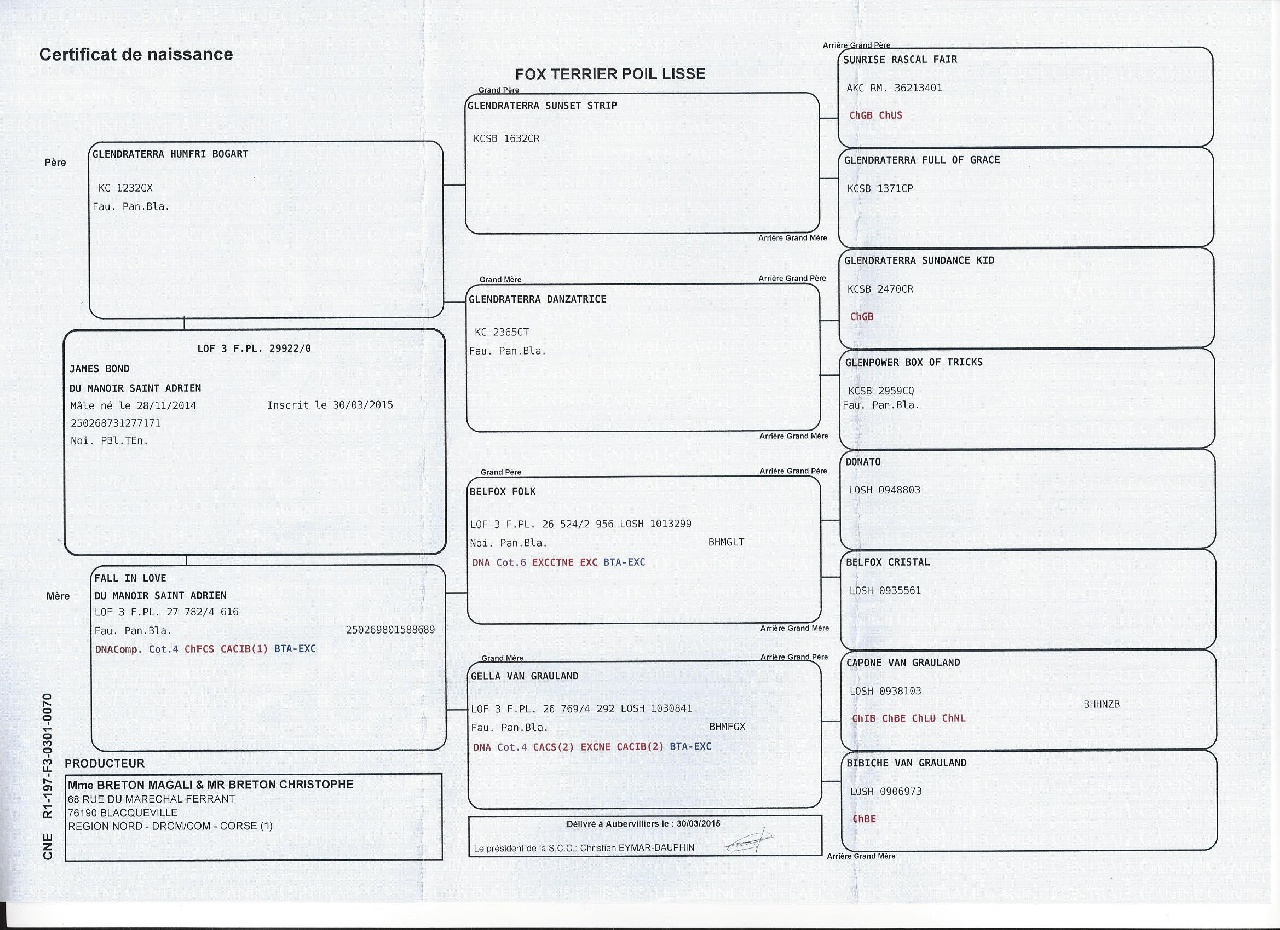 Certificat de naissance
FOX TERRIER POIL LISSE
Père
GLENDRATERRA HUMFRI BOGART
KC 1232CX
Fau. Pan.Bla.
LOF 3 F.PL. 29922/0
JAMES BOND
DU MANOIR SAINT ADRIEN
Mâle né le 28/11/2014 Inscrit le 30/03/2015
250268731277171
Noi. PBl.TEn.
Mère
FALL IN LOVE
DU MANOIR SAINT ADRIEN
LOF 3 F.PL. 27 782/4 616
Fau. Pan.Bla. 250269801588689
DNAComp. Cot.4 ChFCS CACIB(1) BTA-EXC
CNE R1-197-F3-0301-0070
PRODUCTEUR
Mme BRETON MAGALI & MR BRETON CHRISTOPHE
66 RUE DU MARECHAL FERRANT
76190 BLACQUEVILLE
REGION NORD - DRCM/COM - CORSE (1)
Grand Père
GLENDRATERRA SUNSET STRIP
KCSB 1632CR
Arrière Grand Mère
Grand Mère
Arrière Grand Père
GLENDRATERRA DANZATRICE
KC 2365CT
Fau. Pan.Bla.
Arrière Grand Mère
Grand Père
Arrière Grand Père
BELFOX FOLK
LOF 3 F.PL. 26 524/2 956 LOSH 1013299
Noi. Pan.Bla. BHMGLT
DNA Cot.6 EXCCTNE EXC BTA-EXC
Arrière Grand Mère
Grand Mère
Arrière Grand Père
GELLA VAN GRAULAND
LOF 3 F.PL. 26 769/4 292 LOSH 1030841
Fau. Pan.Bla. BHMFGX
DNA Cot.4 CACS(2) EXCNE CACIB(2) BTA-EXC
Délivré à Aubervilliers le : 30/03/2015
Le président de la S.C.C.: Christian EYMAR-DAUPHIN
Arrière Grand Père
SUNRISE RASCAL FAIR
AKC RM. 36213401
ChGB ChUS
GLENDRATERRA FULL OF GRACE
KCSB 1371CP
GLENDRATERRA SUNDANCE KID
KCSB 2470CR
ChGB
GLENPOWER BOX OF TRICKS
KCSB 2959CQ
Fau. Pan.Bla.
DONATO
LOSH 0948803
BELFOX CRISTAL
LOSH 0935561
CAPONE VAN GRAULAND
LOSH 0938103
ChIB ChBE ChLU ChNL
BIBICHE VAN GRAULAND
LOSH 0906973
ChBE
Arrière Grand Mère